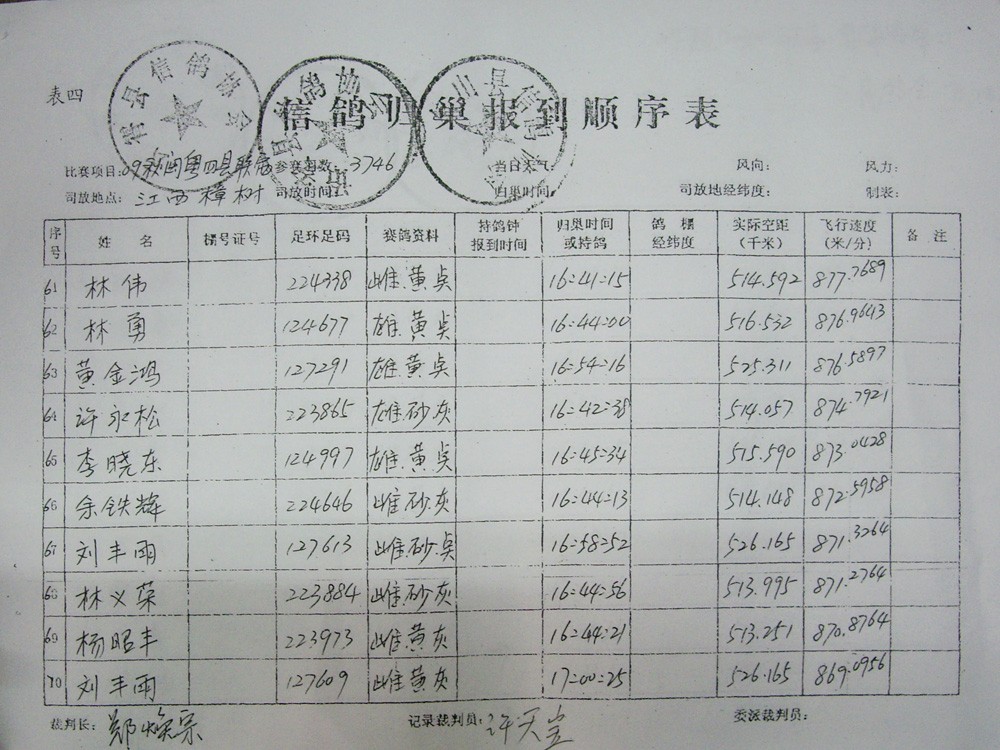 表四
信鸽归巢报到顺序表
比赛项目: 09 闽粤四县联 参赛羽数: 3746 当日天气: 风向: 风力:
司放地点: 江西樟树 司放时间: 归巢时间: 司放地经纬度: 制表:
序号 姓名 棚号证号 足环足码 赛鸽资料 持鸽钟报到时间 归巢时间或持鸽 鸽棚经纬度 实际空距(千米) 飞行速度(米/分) 备注
61 林伟 224338 雌.黄 16:41:15 514.592 877.7689
62 林勇 124677 雄.黄 16:44:00 516.532 876.9643
63 黄金鸿 127291 雄.黄 16:54:16 525.311 876.5897
64 许永松 223865 雄.砂灰 16:42:38 514.057 874.7921
65 李晓东 124997 雄.黄 16:45:34 515.590 873.0428
66 余铁辉 224646 雌.砂灰 16:44:13 514.148 872.5958
67 刘丰雨 127613 雌.砂 16:58:52 526.165 871.3264
68 林义荣 223884 雌.砂灰 16:44:56 513.995 871.2764
69 杨昭丰 223973 雌.黄灰 16:44:21 513.251 870.8764
70 刘丰雨 127609 雌.黄灰 17:00:25 526.165 869.0956
裁判长: 郑焕宗 记录裁判员: 许天 委派裁判员: